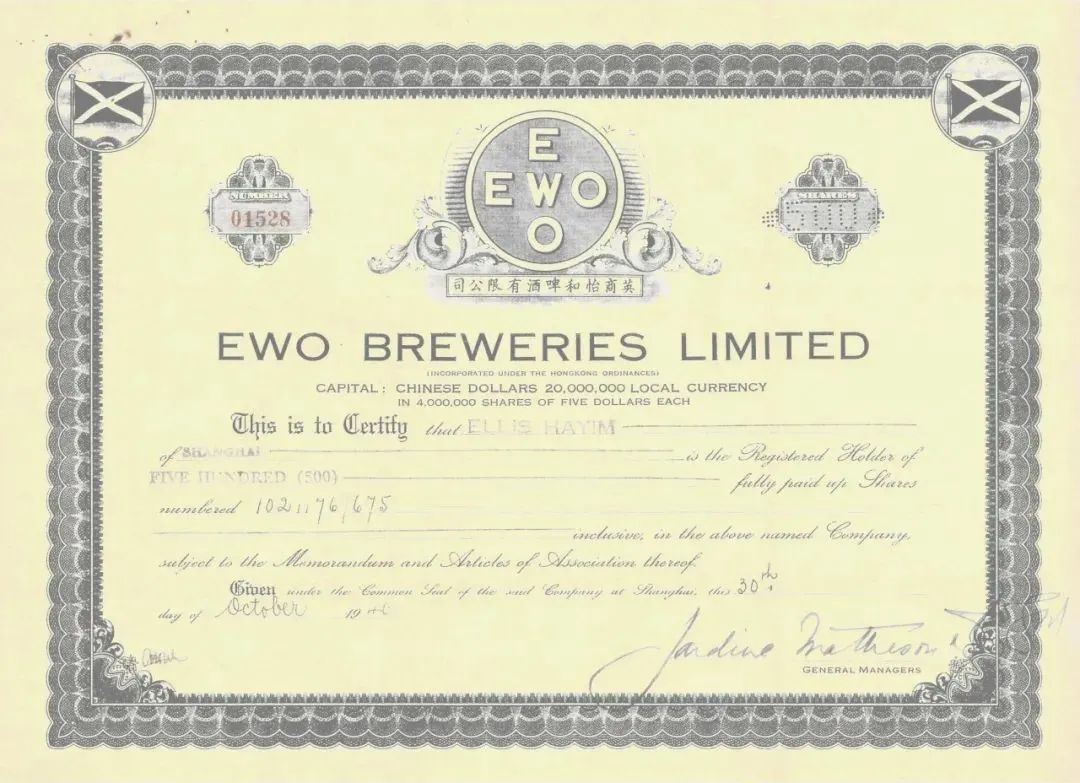 E
EWO
O
NUMBER
01528
SHARES
500
英商怡和啤酒有限公司
EWO BREWERIES LIMITED
(INCORPORATED UNDER THE HONGKONG ORDINANCES)
CAPITAL: CHINESE DOLLARS 20,000,000 LOCAL CURRENCY
IN 4,000,000 SHARES OF FIVE DOLLARS EACH
This is to Certify that ELLIS HAYIM
of SHANGHAI is the Registered Holder of
FIVE HUNDRED (500) fully paid up Shares
numbered 1021176/675
inclusive, in the above named Company,
subject to the Memorandum and Articles of Association thereof.
Given under the Common Seal of the said Company at Shanghai, this 30th
day of October 19
Jardine Matheson
GENERAL MANAGERS